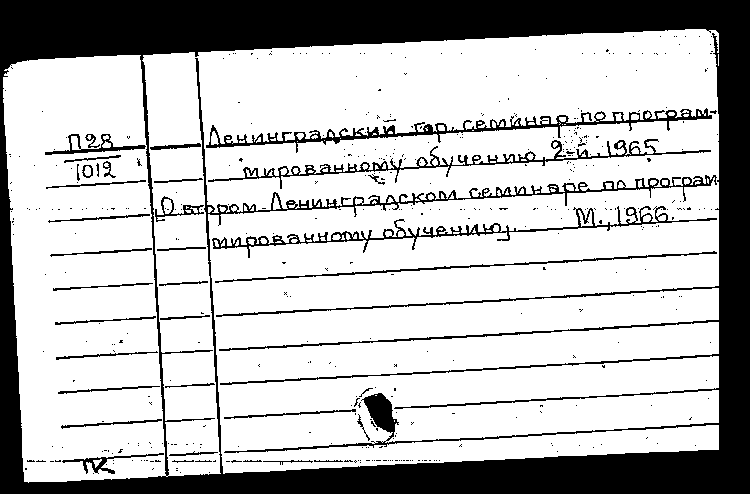 П28
1012
Ленинградский гор. семинар по програм-
мированному обучению, 2-й. 1965
[О втором Ленинградском семинаре по програм-
мированному обучению].      М., 1966.
ПК